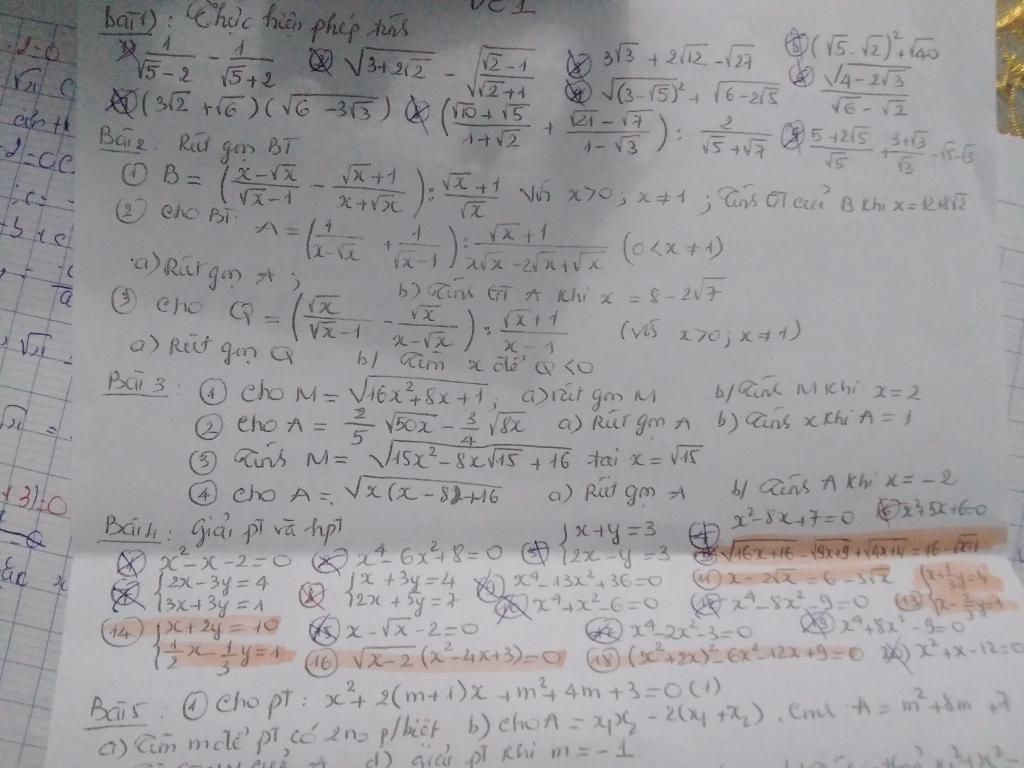 ĐỀ 1
Bài 1): Thực hiện phép tính
1/(√5-2) - 1/(√5+2) √(3+2√2) - √((√2-1)/(√2+1)) 3√3 + 2√12 - √27 (√5-√2)² + √40
(3√2+√6)(√6-3√3) ((√10+√5)/(1+√2) + (√21-√7)/(1-√3)) : 2/(√5+√7) √(3-√5)² + √(6-2√5) √(4-2√3)/(√6-√2) (5+2√5)/√5 + (3+√3)/√3 - √5-√3
Bài 2: Rút gọn BT
① B = ((x-√x)/(√x-1) - (√x+1)/(x+√x)) : (√x+1)/√x với x>0; x≠1; Tính GT của B khi x=12+8√2
② Cho BT:
A = (1/(x-√x) + 1/(√x-1)) : (√x+1)/(x√x-2√x+√x) (0<x≠1)
a) Rút gọn A; b) Tính GT A khi x = 8-2√7
③ Cho Q = (√x/(√x-1) - √x/(x-√x)) : (√x+1)/(x-1) (với x>0; x≠1)
a) Rút gọn Q b) Tìm x để Q<0
Bài 3: ① Cho M = √(16x²+8x+1); a) rút gọn M b) Tính M khi x=2
② Cho A = 2/5 √50x - 3/4 √8x a) Rút gọn A b) Tính x khi A=1
③ Tính M = √(15x²-8x√15+16) tại x=√15
④ Cho A = √(x(x-8)+16) a) Rút gọn A b) Tính A khi x=-2
Bài 4: Giải pt và hpt
x²-x-2=0 x⁴-6x²+8=0 {x+y=3 2x-y=3 x²-8x+7=0 x²+5x+6=0
√(16x+16) - √(9x+9) + √(4x+4) = 16-√(x+1)
{2x-3y=4 3x+3y=1 {x+3y=4 2x+5y=7 x⁴-13x²+36=0 ⑪ x-2√x=6-3√x
x⁴+x²-6=0 x⁴-8x²-9=0 ⑬
⑭ {x+2y=10 1/2x-1/3y=1 x-√x-2=0 x⁴-2x²-3=0 x⁴+8x²-9=0
⑯ √(x-2)(x²-4x+3)=0 ⑱ (x²+2x)²-6x²-12x+9=0 x²+x-12=0
Bài 5: ① Cho pt: x²+2(m+1)x+m²+4m+3=0 (1)
a) Tìm m để pt có 2no p/biệt b) cho A = x₁x₂-2(x₁+x₂). Cmr A=m²+8m+7
d) giải pt khi m=-1